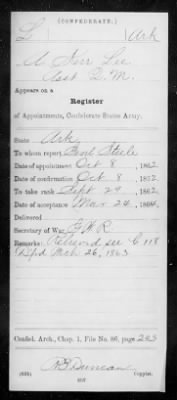 (CONFEDERATE.)
L Ark
A Kerr Lee
Asst Q. M.
Appears on a
Register
of Appointments, Confederate States Army.
State Ark
To whom report Genl Steele
Date of appointment Oct 8, 1862
Date of confirmation Oct 8, 1862
To take rank Sept 29, 1862
Date of acceptance Mar 24, 186
Delivered
Secretary of War G. W. R.
Remarks: see C 118
Mch 26, 1863
Confed. Arch., Chap. 1, File No. 86, page 263
R Duncan
(635) Copyist.